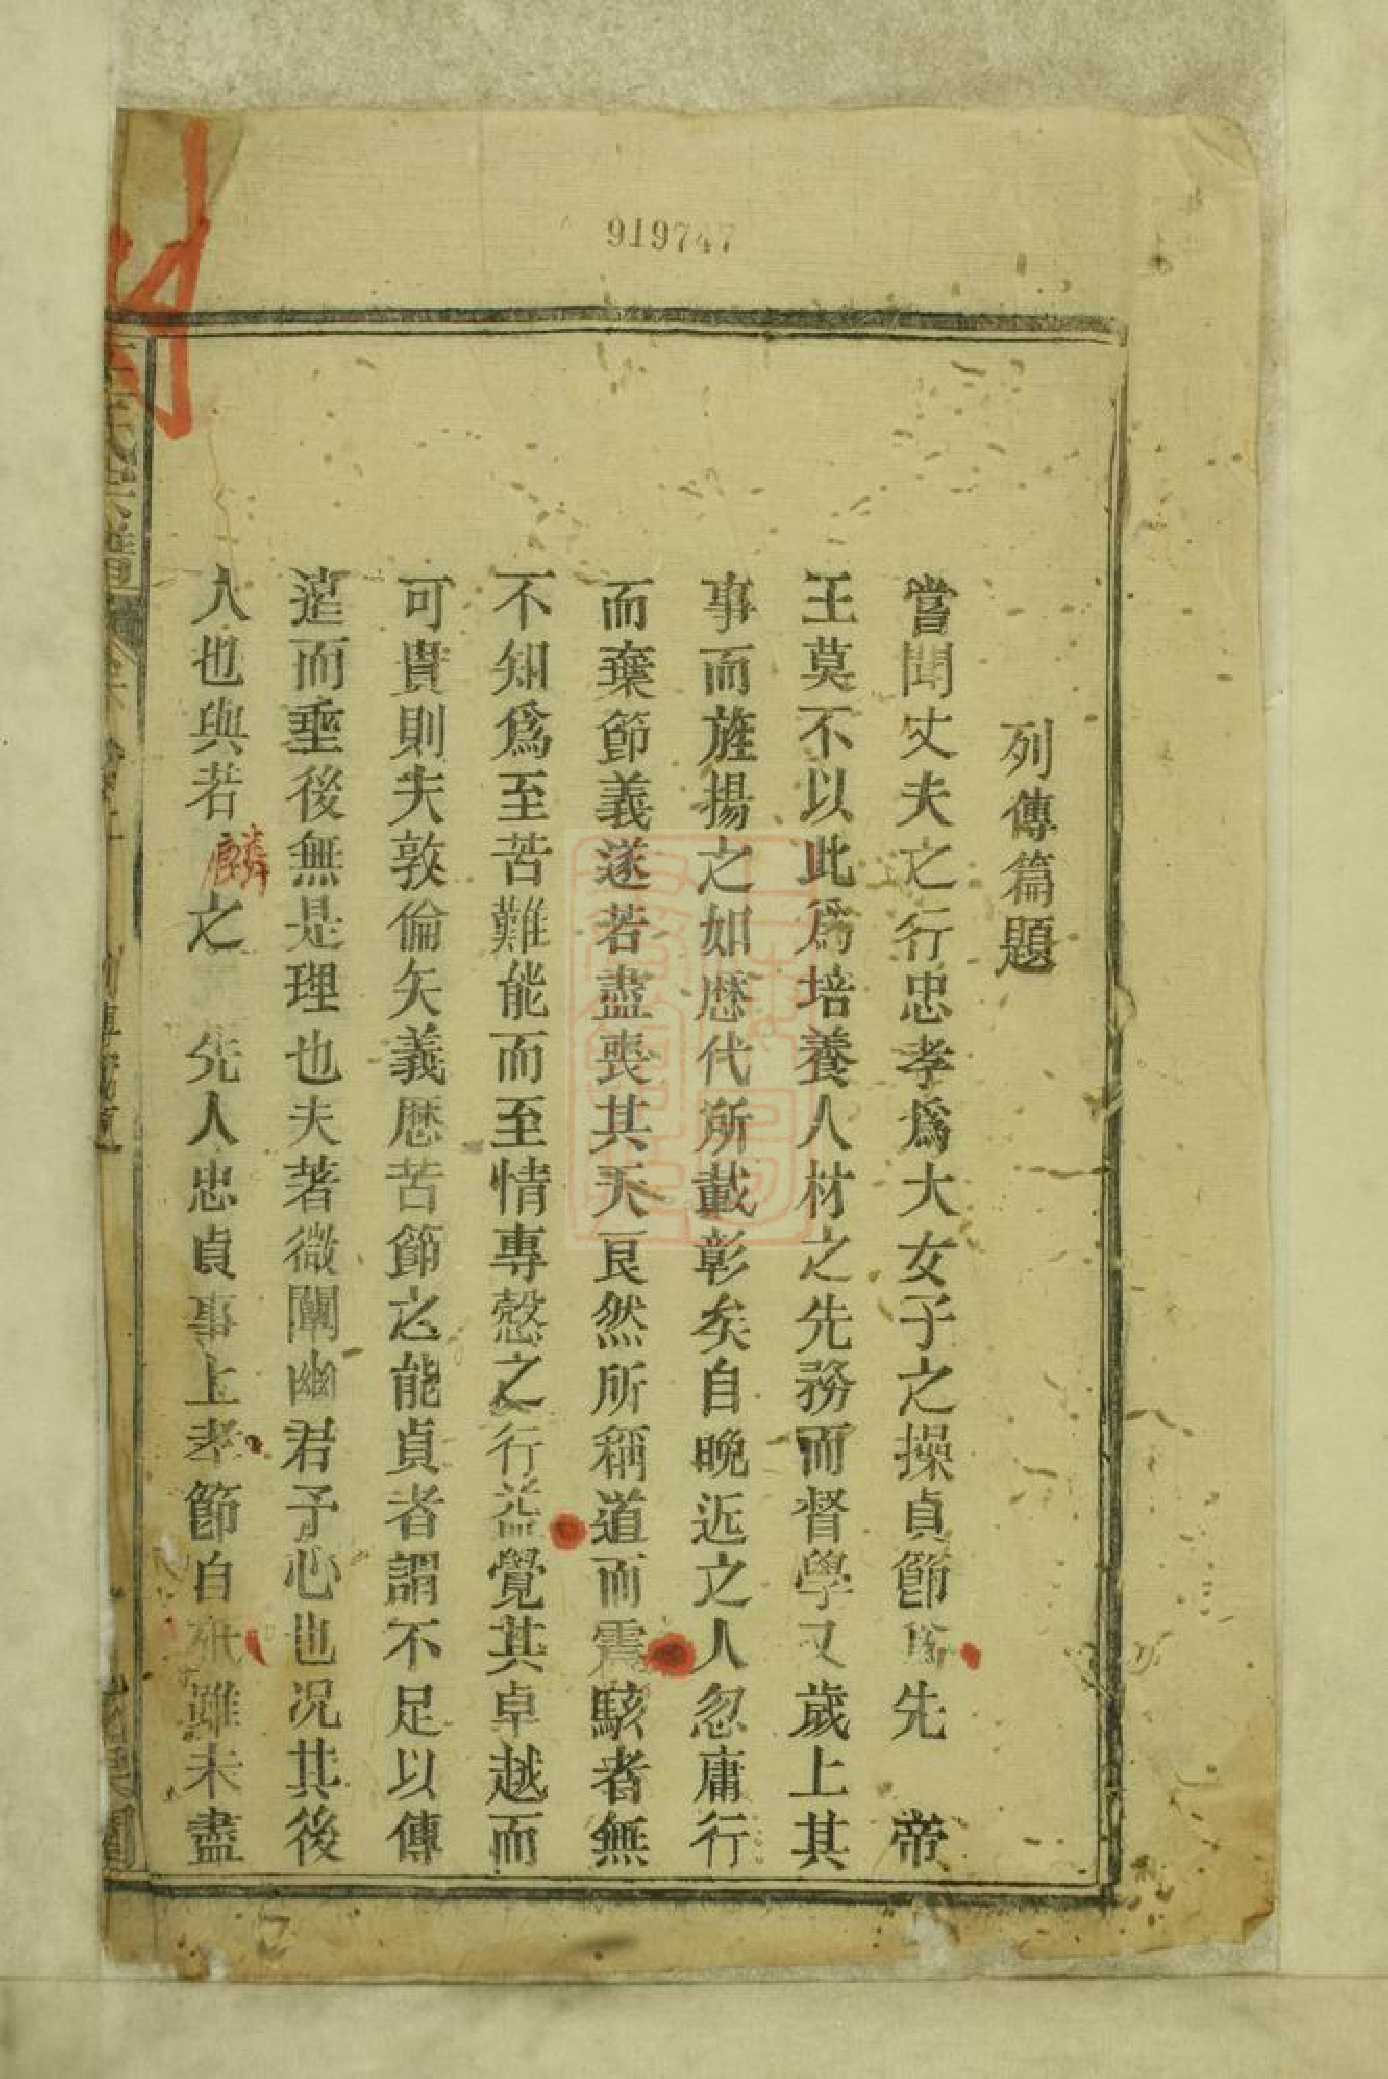 919747
列傳篇題
嘗聞丈夫之行忠孝為大女子之操貞節先 帝
王莫不以此為培養人材之先務而督學又歲上其
事而旌揚之如歷代所載彰矣自晚近之人忽庸行
而棄節義遂若盡喪其天良然所稱道而震駭者無
不知為至苦難能而至情專慤之行益覺其卓越而
可貴則夫敦倫矢義歷苦節之能貞者謂不足以傳
逺而垂後無是理也夫著微闡幽君子心也况其後
人也與若麟之 先人忠貞事上孝節自砥雖未盡
氏宗譜